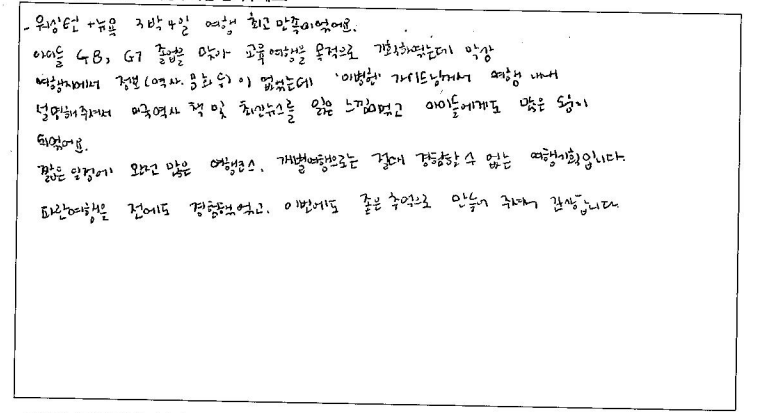 - 워싱턴 + 뉴욕 3박 4일 여행 최고 만족이었어요.
아이들 G8, G7 졸업을 맞아 교육여행을 목적으로 기획하였는데 막상
여행지에서 정보(역사. 문화 등)이 없었는데 '이병헌' 가이드님께서 여행 내내
설명해주셔서 미국역사 책 및 최신뉴스를 읽은 느낌이였고 아이들에게도 많은 도움이
되었어요.
짧은 일정에 완전 많은 여행코스, 개별여행으로는 절대 경험할 수 없는 여행기획입니다.
파란여행을 전에도 경험했었고, 이번에도 좋은 추억으로 만들어 주셔서 감사합니다.